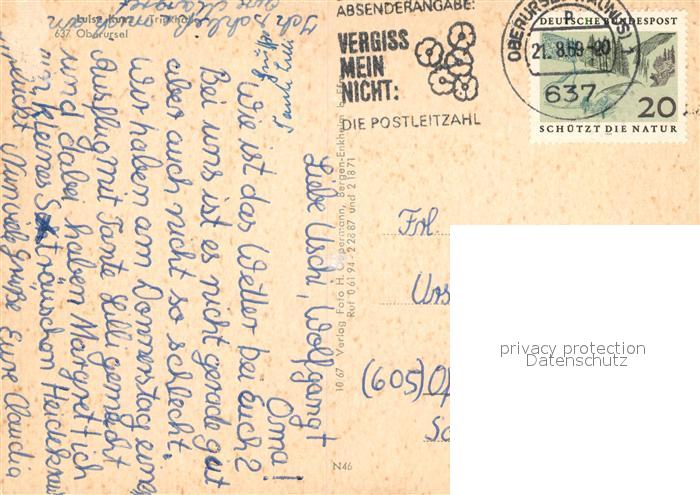 ABSENDERANGABE:
VERGISS
MEIN
NICHT:
DIE POSTLEITZAHL
OBERURSEL (TAUNUS) 1
21.8.69-20
637
DEUTSCHE BUNDESPOST
20
SCHÜTZT DIE NATUR
Luise Kunz
637 Oberursel
Liebe Uschi, Wolfgang +
Oma!
Wie ist das Wetter bei Euch?
Bei uns ist es nicht gerade gut
aber auch nicht so schlecht.
Wir haben am Donnerstag eine
Ausflug mit Tante Lilli gemacht
und dabei haben Margret + ich
kleines Sträuschen Heidekrau
pflückt Nun viele Grüße Eure Claudia
10/67 Verlag Foto H. Oppermann, Bergen-Enkheim b. Ffm
Ruf 06194-22887 und 21871
N46
Frl.
Urs
(605) Of
privacy protection
Datenschutz